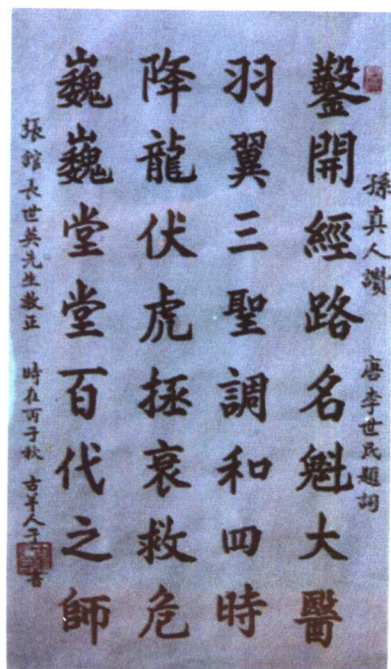 孫真人讚 唐李世民題詞
鑿開經路名魁大醫
羽翼三聖調和四時
降龍伏虎拯衰救危
巍巍堂堂百代之師
張舘長世英先生教正 時在丙子秋 古羊人 書